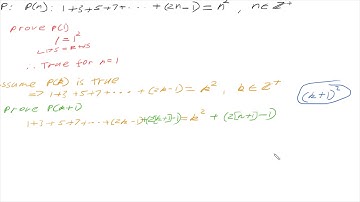 P: P(n): 1+3+5+7+⋯+(2n-1)=n², n∈Z⁺
Prove P(1)
1=1²
LHS=RHS
∴ True for n=1
Assume P(k) is true
⇒ 1+3+5+7+⋯+(2k-1)=k², k∈Z⁺
(k+1)²
Prove P(k+1)
1+3+5+7+⋯+(2k-1)+(2[k+1]-1)=k²+(2[k+1]-1)